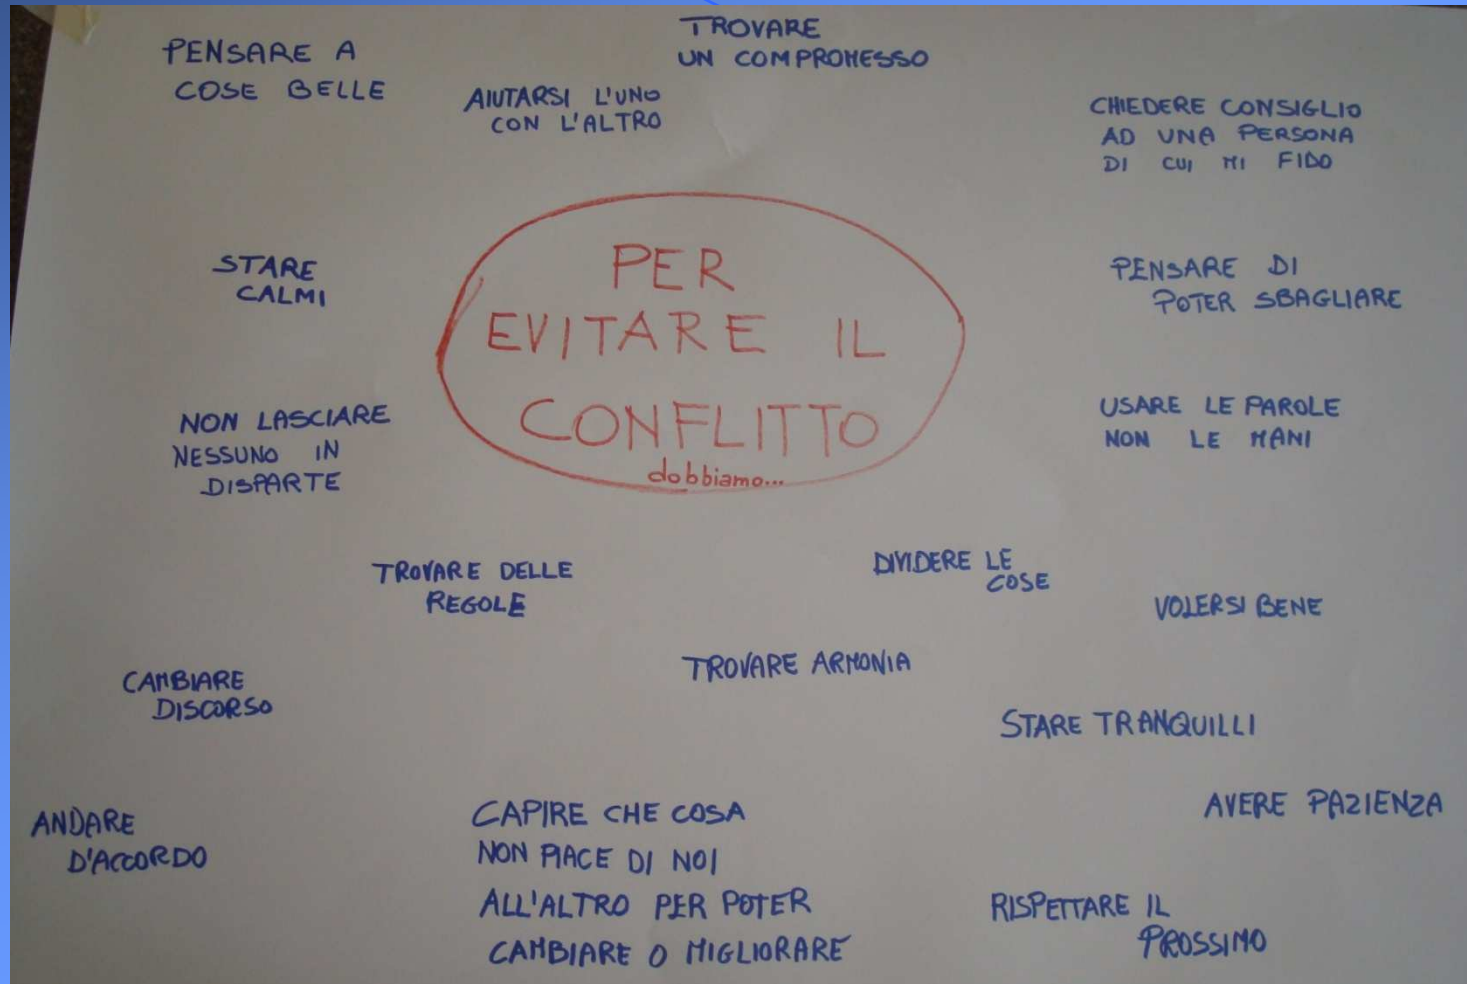 PENSARE A
COSE BELLE
TROVARE
UN COMPROMESSO
AIUTARSI L'UNO
CON L'ALTRO
CHIEDERE CONSIGLIO
AD UNA PERSONA
DI CUI MI FIDO
STARE
CALMI
PER
EVITARE IL
CONFLITTO
dobbiamo...
PENSARE DI
POTER SBAGLIARE
NON LASCIARE
NESSUNO IN
DISPARTE
USARE LE PAROLE
NON LE MANI
TROVARE DELLE
REGOLE
DIVIDERE LE
COSE
VOLERSI BENE
TROVARE ARMONIA
CAMBIARE
DISCORSO
STARE TRANQUILLI
ANDARE
D'ACCORDO
CAPIRE CHE COSA
NON PIACE DI NOI
ALL'ALTRO PER POTER
CAMBIARE O MIGLIORARE
AVERE PAZIENZA
RISPETTARE IL
PROSSIMO